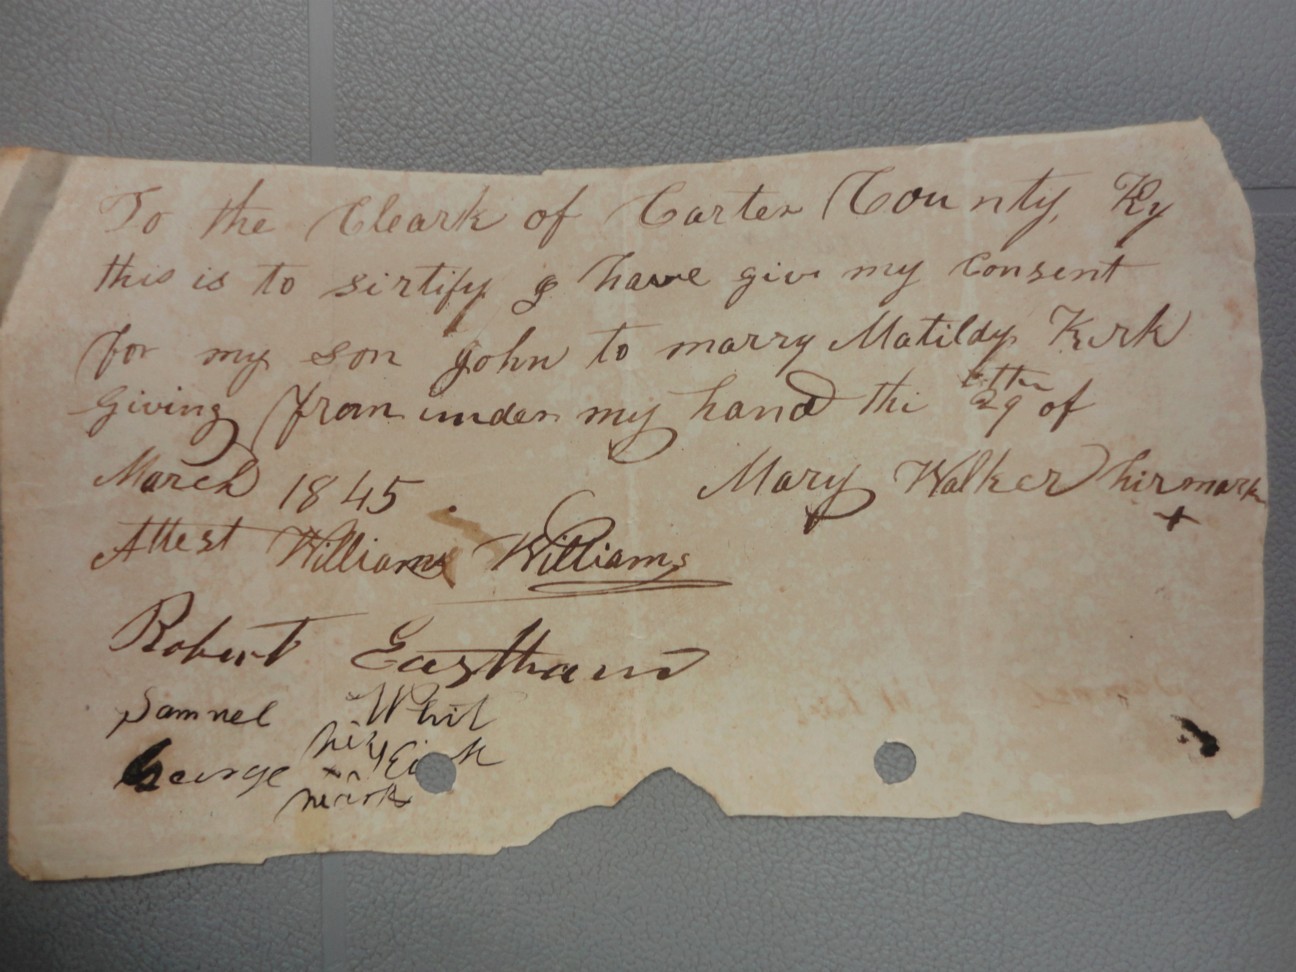 To the Cleark of Carter County, Ky
this is to sirtify I have give my Consent
for my son John to marry Matildy Kirk
Giving from under my hand the 29 of
March 1845. Mary Walker hir mark
+
Attest William Williams
Robert Eastham
Samuel Whit
his
George x
mark